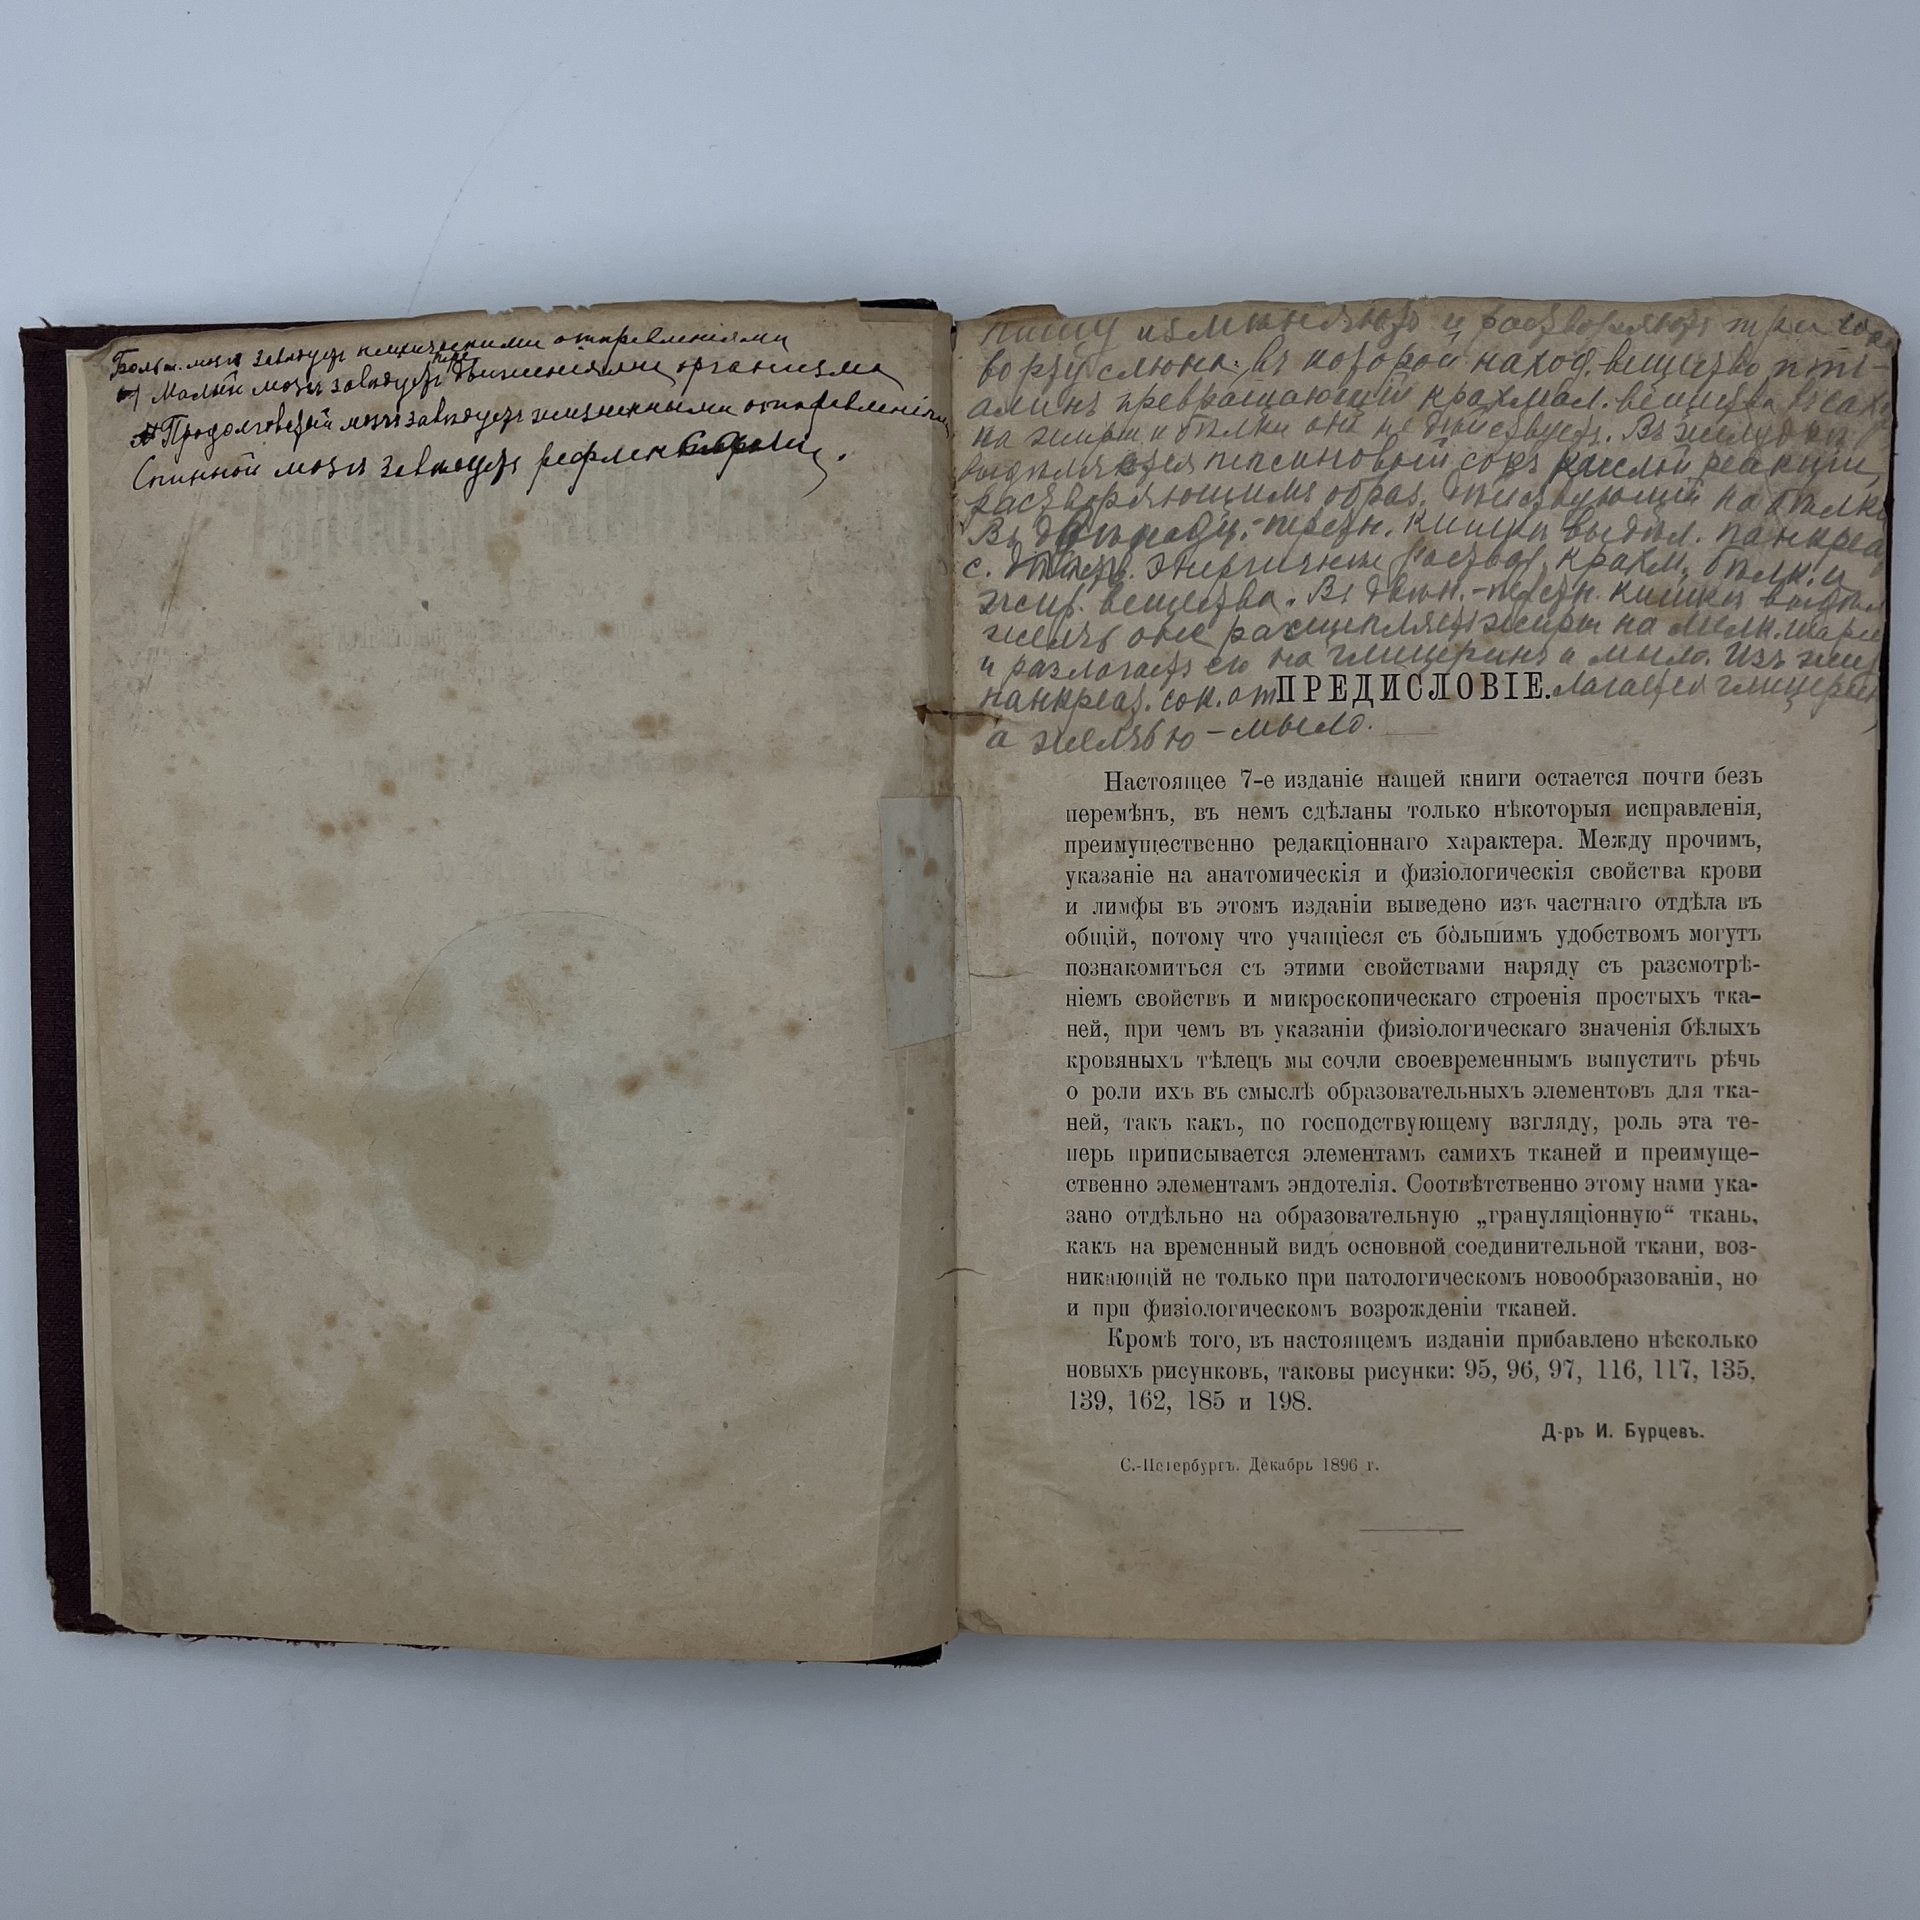 Больш. мозгъ завѣдуетъ психическими отправленіями
Малый мозгъ завѣдуетъ движеніями организма
Продолговатый мозгъ завѣдуетъ жизненными отправленіями
Спинной мозгъ завѣдуетъ рефлекторными.
пищу измѣняютъ и растворяютъ три сока
во рту слюна, въ которой наход. вещество пті-
алинъ превращающій крахмал. вещества въ сах
на жиры и бѣлки она не дѣйствуетъ. Въ желудкѣ
выдѣляется пепсиновый сокъ кислой реакціи,
растворяющимъ образ. дѣйствующій на бѣлки
Въ двѣнадц.-перстн. кишкѣ выдѣл. панкреа
с. дѣйств. энергичнѣе раствор. крахм., бѣлк. и
жир. вещества. Въ двѣн.-перстн. кишкѣ выдѣл
желчь она расщепляетъ жиры на мелк. шари
и разлагаетъ его на глицеринъ и мыло. Изъ жир
панкреат. сок. от ПРЕДИСЛОВІЕ. лагается глицерин
а желчью – мыло.
Настоящее 7-е изданіе нашей книги остается почти безъ
перемѣнъ, въ немъ сдѣланы только нѣкоторыя исправленія,
преимущественно редакціоннаго характера. Между прочимъ,
указаніе на анатомическія и физіологическія свойства крови
и лимфы въ этомъ изданіи выведено изъ частнаго отдѣла въ
общій, потому что учащіеся съ бо̀льшимъ удобствомъ могутъ
познакомиться съ этими свойствами наряду съ разсмотрѣ-
ніемъ свойствъ и микроскопическаго строенія простыхъ тка-
ней, при чемъ въ указаніи физіологическаго значенія бѣлыхъ
кровяныхъ тѣлецъ мы сочли своевременнымъ выпустить рѣчь
о роли ихъ въ смыслѣ образовательныхъ элементовъ для тка-
ней, такъ какъ, по господствующему взгляду, роль эта те-
перь приписывается элементамъ самихъ тканей и преимуще-
ственно элементамъ эндотелія. Соотвѣтственно этому нами ука-
зано отдѣльно на образовательную „грануляціонную“ ткань,
какъ на временный видъ основной соединительной ткани, воз-
никающій не только при патологическомъ новообразованіи, но
и при физіологическомъ возрожденіи тканей.
Кромѣ того, въ настоящемъ изданіи прибавлено нѣсколько
новыхъ рисунковъ, таковы рисунки: 95, 96, 97, 116, 117, 135,
139, 162, 185 и 198.
Д-ръ И. Бурцевъ.
С.-Петербургъ. Декабрь 1896 г.